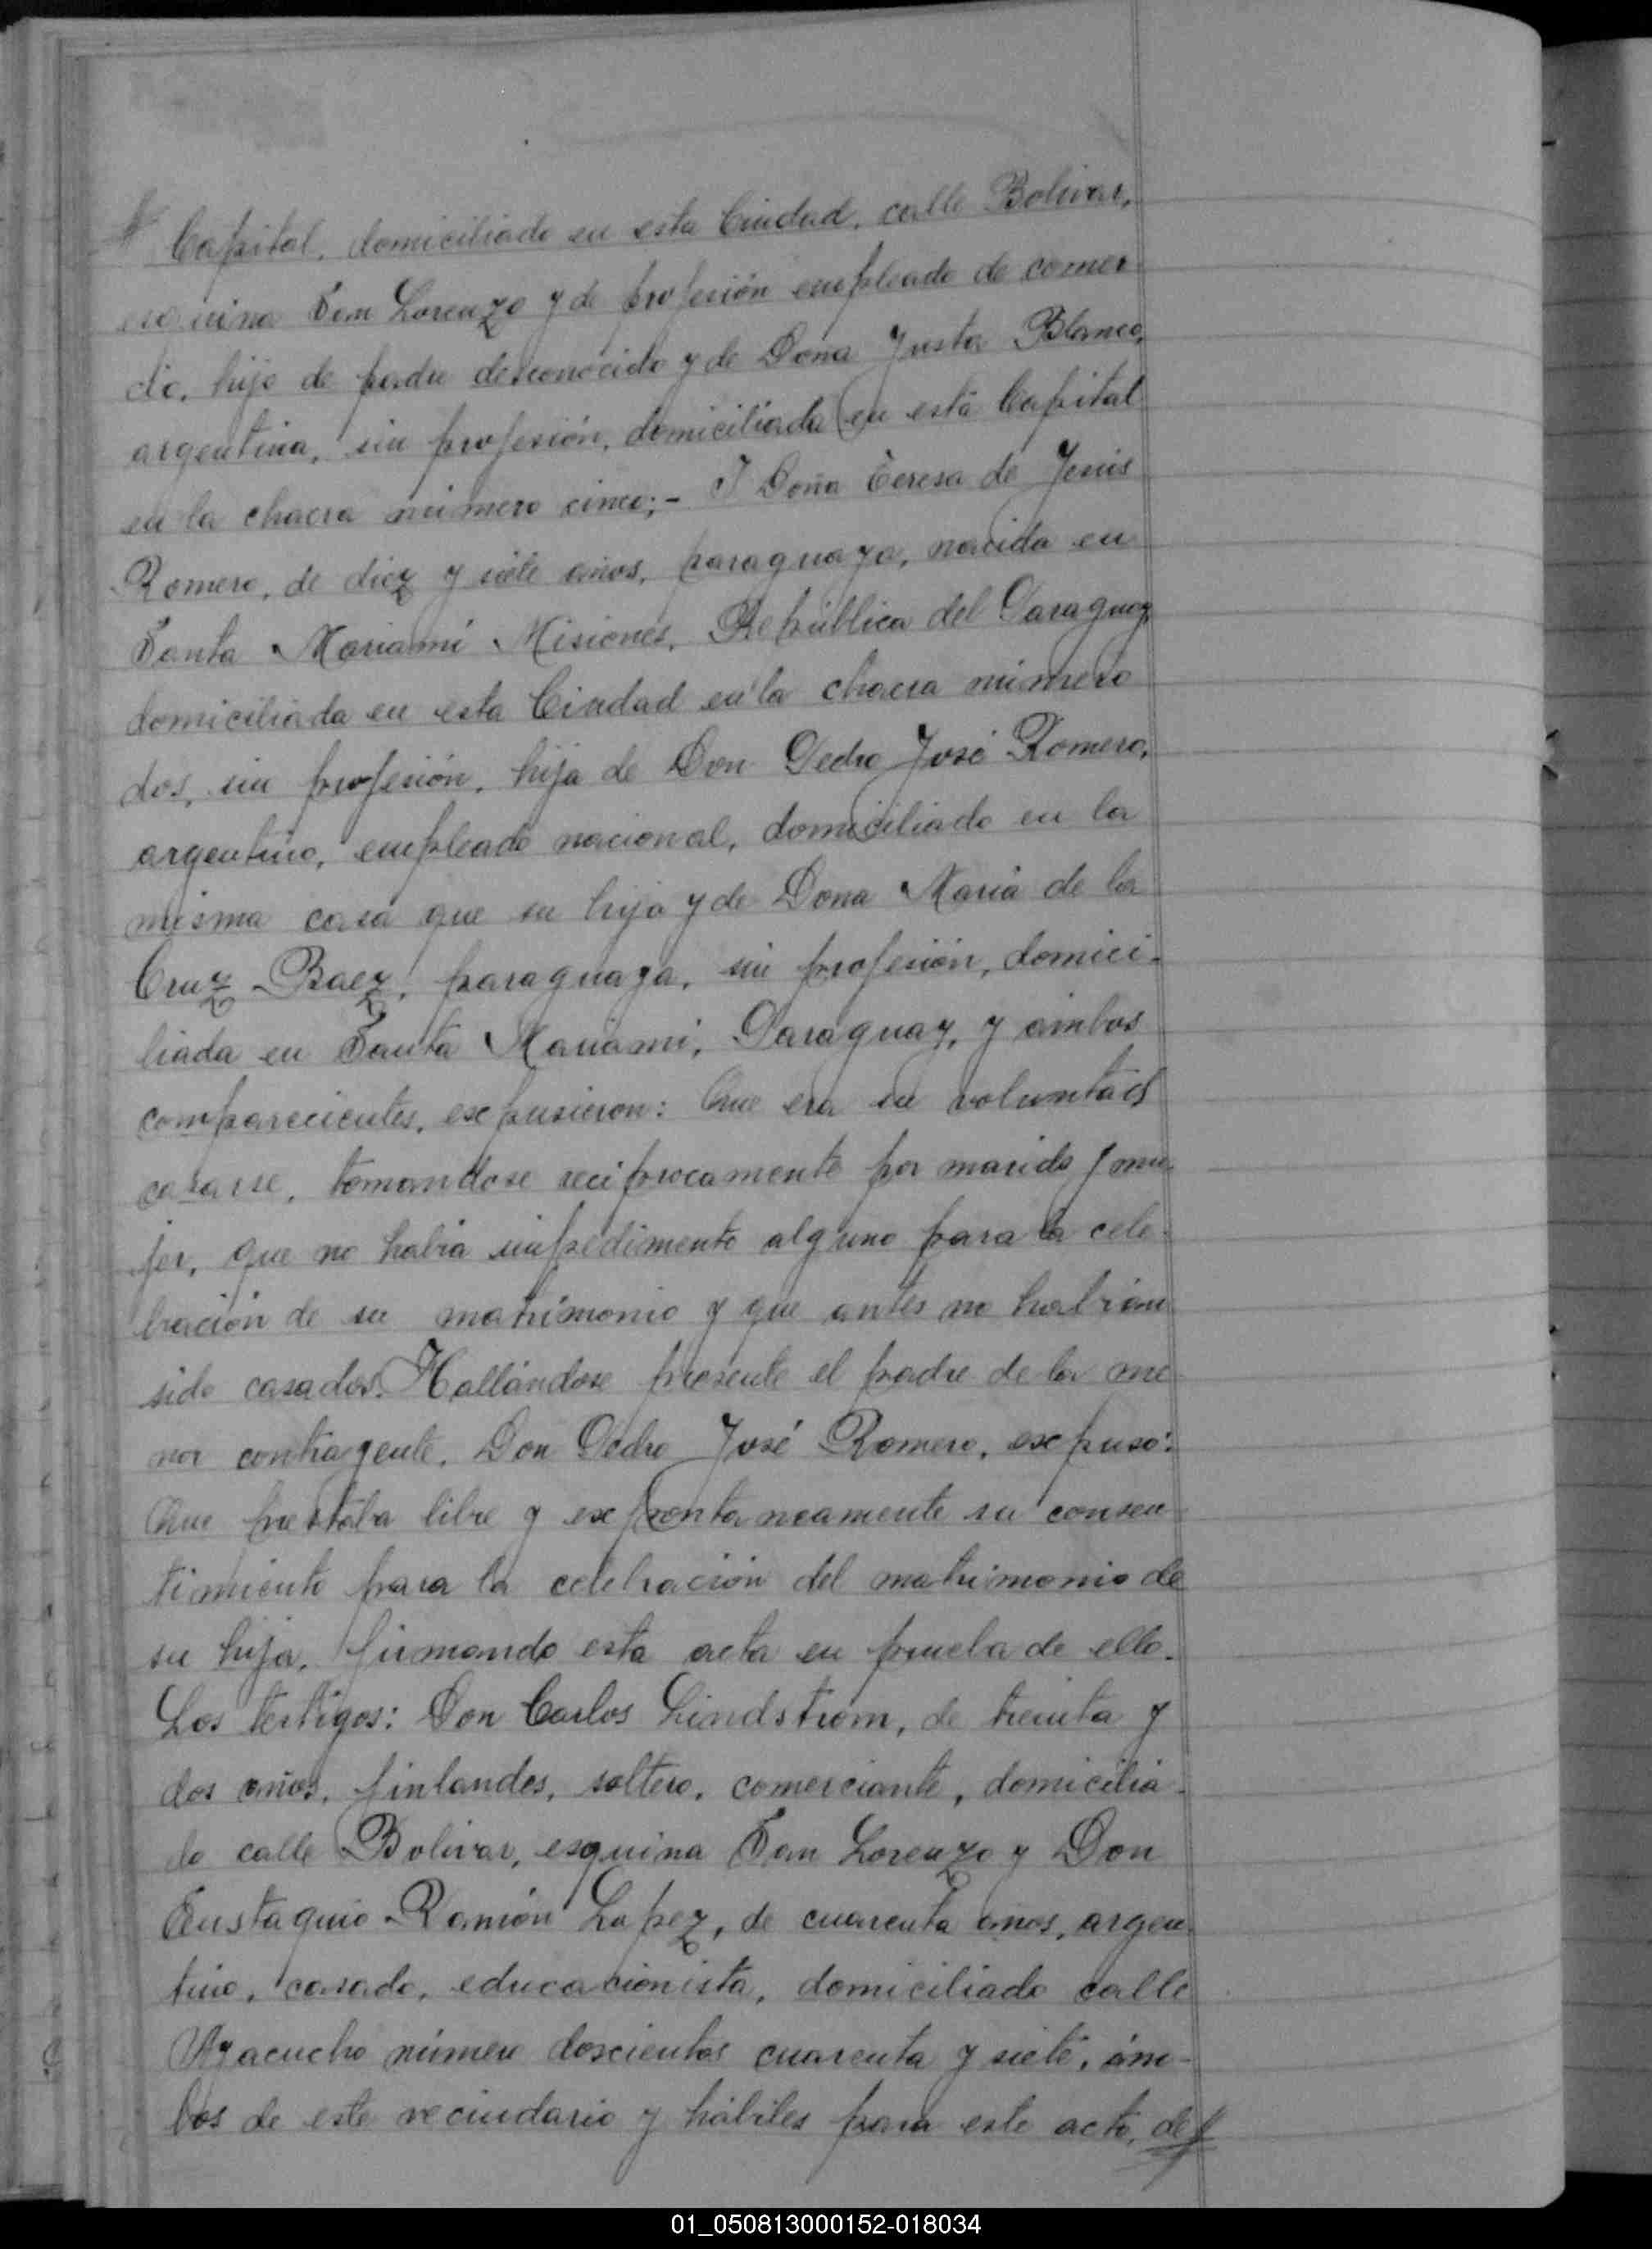 Capital, domiciliado en esta Ciudad, calle Bolivar,
esquina San Lorenzo y de profesión empleado de comer
cio, hijo de padre desconocido y de Doña Justa Blanco,
argentina, sin profesión, domiciliada en esta Capital
en la chacra número cinco;- I Doña Teresa de Jesús
Romero, de diez y siete años, paraguaya, nacida en
Santa Mariami Misiones, República del Paraguay,
domiciliada en esta Ciudad en la chacra número
dos, sin profesión, hija de Don Pedro José Romero,
argentino, empleado nacional, domiciliado en la
misma casa que su hija y de Dona Maria de la
Cruz Baez, paraguaya, sin profesión, domici-
liada en Santa Mariami, Paraguay, y ambos
comparecientes, expusieron: Que era su voluntad
casarse, tomandose reciprocamente por marido y mu-
jer, que no habia impedimento alguno para la cele-
bración de su matrimonio y que antes no habian
sido casados. Hallándose presente el padre de la me
nor contrayente, Don Pedro José Romero, expuso:
Que prestaba libre y expontaneamente su consen-
timiento para la celebración del matrimonio de
su hija, firmando esta acta en prueba de ello.
Los testigos: Don Carlos Lindstrom, de treinta y
dos años, finlandes, soltero, comerciante, domicilia-
do calle Bolivar, esquina San Lorenzo y Don
Eustaquio Ramón Lopez, de cuarenta años, argen-
tino, casado, educacionista, domiciliado calle
Ayacucho número doscientos cuarenta y siete, ám-
bos de este vecindario y hábiles para este acto, de
01_050813000152-018034